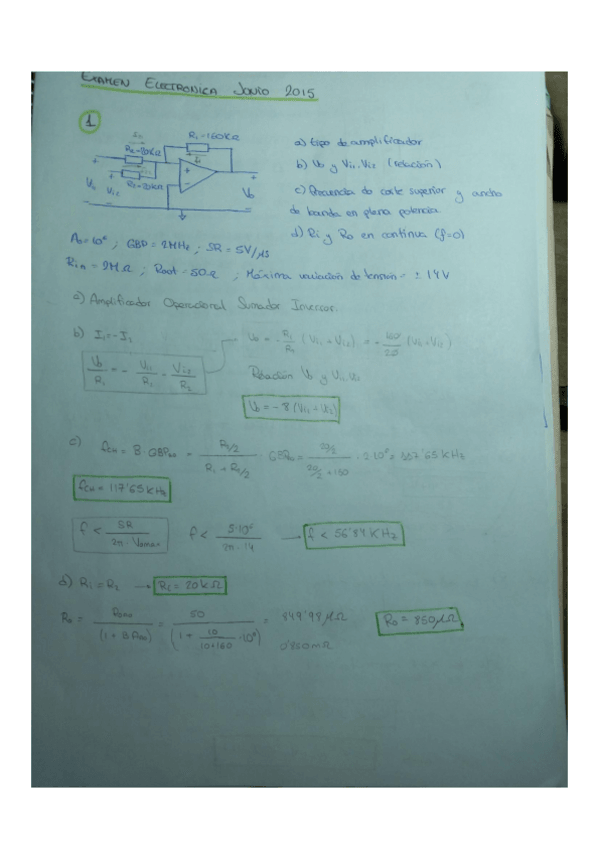 EXAMEN ELECTRONICA JUNIO 2015
1
R₁=160KΩ
R₂=20KΩ
R₂=20KΩ
Vi₁ Vi₂
Vo
a) tipo de amplificador
b) Vo y Vi₁, Vi₂ (relación)
c) Frecuencia de corte superior y ancho
de banda en plena potencia.
d) Ri y Ro en continua (f=0)
A₀=10⁶ ; GBP=2MHz ; SR=5V/μs
Rin=2MΩ ; Rout=50Ω ; Máxima variación de tensión=±14V
a) Amplificador Operacional Sumador Inversor.
b) I₁=-I₂
Vo/R₁ = - Vi₁/R₂ - Vi₂/R₂
Vo = - R₁/R₂ (Vi₁ + Vi₂) = - 160/20 (Vi₁+Vi₂)
Relación Vo y Vi₁,Vi₂
Vo = -8 (Vi₁+Vi₂)
c) fCH = B · GBP = (R₂/2)/(R₁ + R₂/2) · GBP = (20/2)/(20/2 + 160) · 2·10⁶ = 117'65 KHz
fCH = 117'65 KHz
f < SR/(2π · Vomax)
f < 5·10⁶/(2π · 14) → f < 56'84 KHz
d) Ri = R₂ → Ri = 20KΩ
Ro = /(1 + B A₀) = 50/(1 + 10/(10+160) · 10⁶) = 849'98 μΩ
0'850mΩ
Ro = 850μΩ